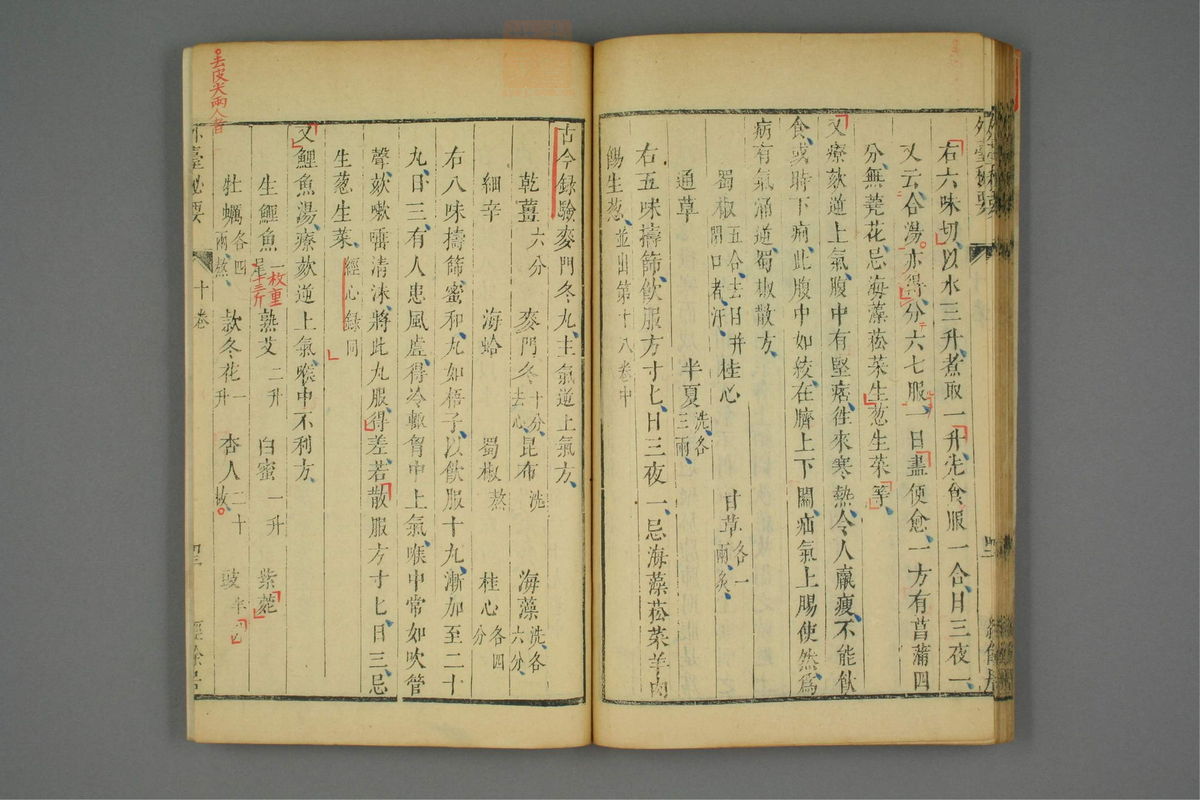 右六味切以水三升煮取一升先食服一合日三夜一
又云合湯亦得分六七服一日盡便愈一方有菖蒲四
分無莞花忌海藻菘菜生葱生菜等
又療欬逆上氣腹中有堅痞往來寒熱令人羸瘦不能飲
食或時下痢此腹中如絞在臍上下關疝氣上腸使然爲
病有氣涌逆蜀椒散方
蜀椒五合去目并閉口者汗 桂心 甘草各一兩炙
通草 半夏洗各三兩
右五味擣篩飲服方寸匕日三夜一忌海藻菘菜羊肉
餳生葱並出第十八卷中
古今録驗麥門冬丸主氣逆上氣方
乾薑六分 麥門冬十分去心 昆布洗 海藻洗各六分
細辛 海蛤 蜀椒熬 桂心各四分
右八味擣篩蜜和丸如梧子以飲服十丸漸加至二十
丸日三有人患風虛得冷輙胷中上氣喉中常如吹管
聲欬嗽唾清沫將此丸服得差若散服方寸匕日三忌
生葱生菜經心録同
又鯉魚湯療欬逆上氣喉中不利方
生鯉魚一枚重十三斤 熟艾二升 白蜜一升 紫菀
牡蠣各四兩熬 款冬花一升 杏人二十枚 豉半
外臺秘要 十卷 經餘居
去皮尖兩人者